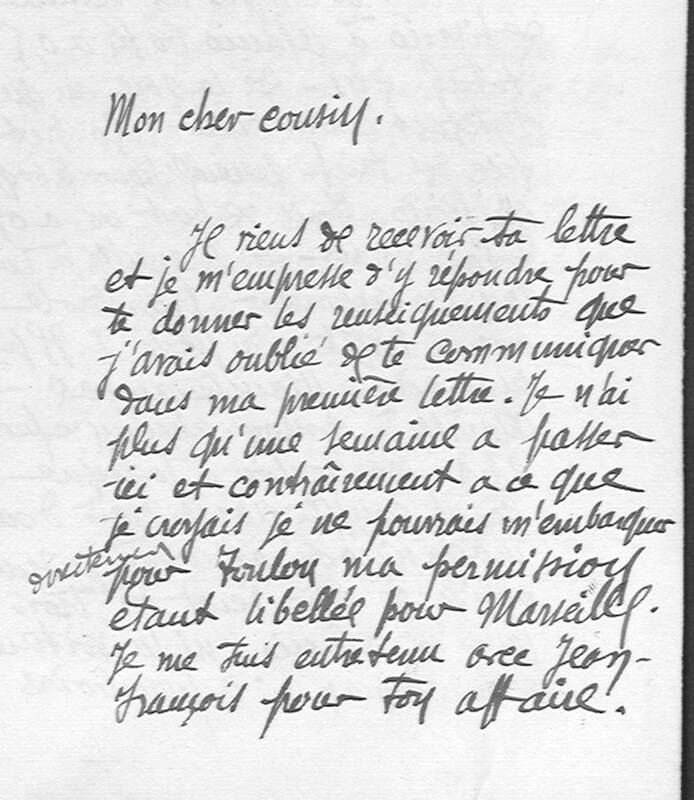 Mon cher cousin.
Je viens de recevoir ta lettre
et je m'empresse d'y répondre pour
te donner les renseignements que
j'avais oublié de te communiquer
dans ma première lettre. Je n'ai
plus qu'une semaine a passer
ici et contrairement a ce que
je croyais je ne pourrais m'embarquer
directement
pour Toulon ma permission
etant libellée pour Marseille.
Je me suis entretenu avec Jean-
François pour ton affaire.